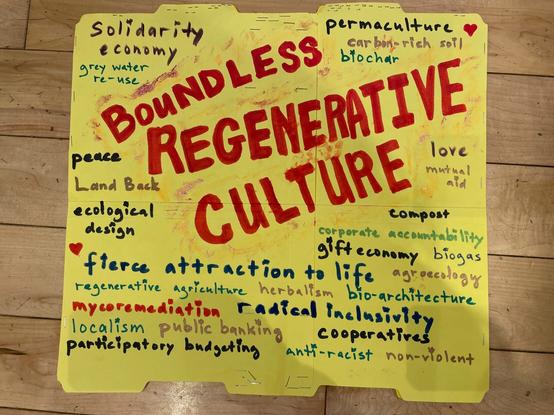 Solidarity
economy
grey water
re-use
permaculture
carbon-rich soil
biochar
BOUNDLESS
REGENERATIVE
CULTURE
peace
Land Back
ecological
design
love
mutual
aid
compost
corporate accountability
gift economy biogas
agroecology
fierce attraction to life
regenerative agriculture herbalism bio-architecture
mycoremediation radical inclusivity
localism public banking cooperatives
participatory budgeting
anti-racist non-violent